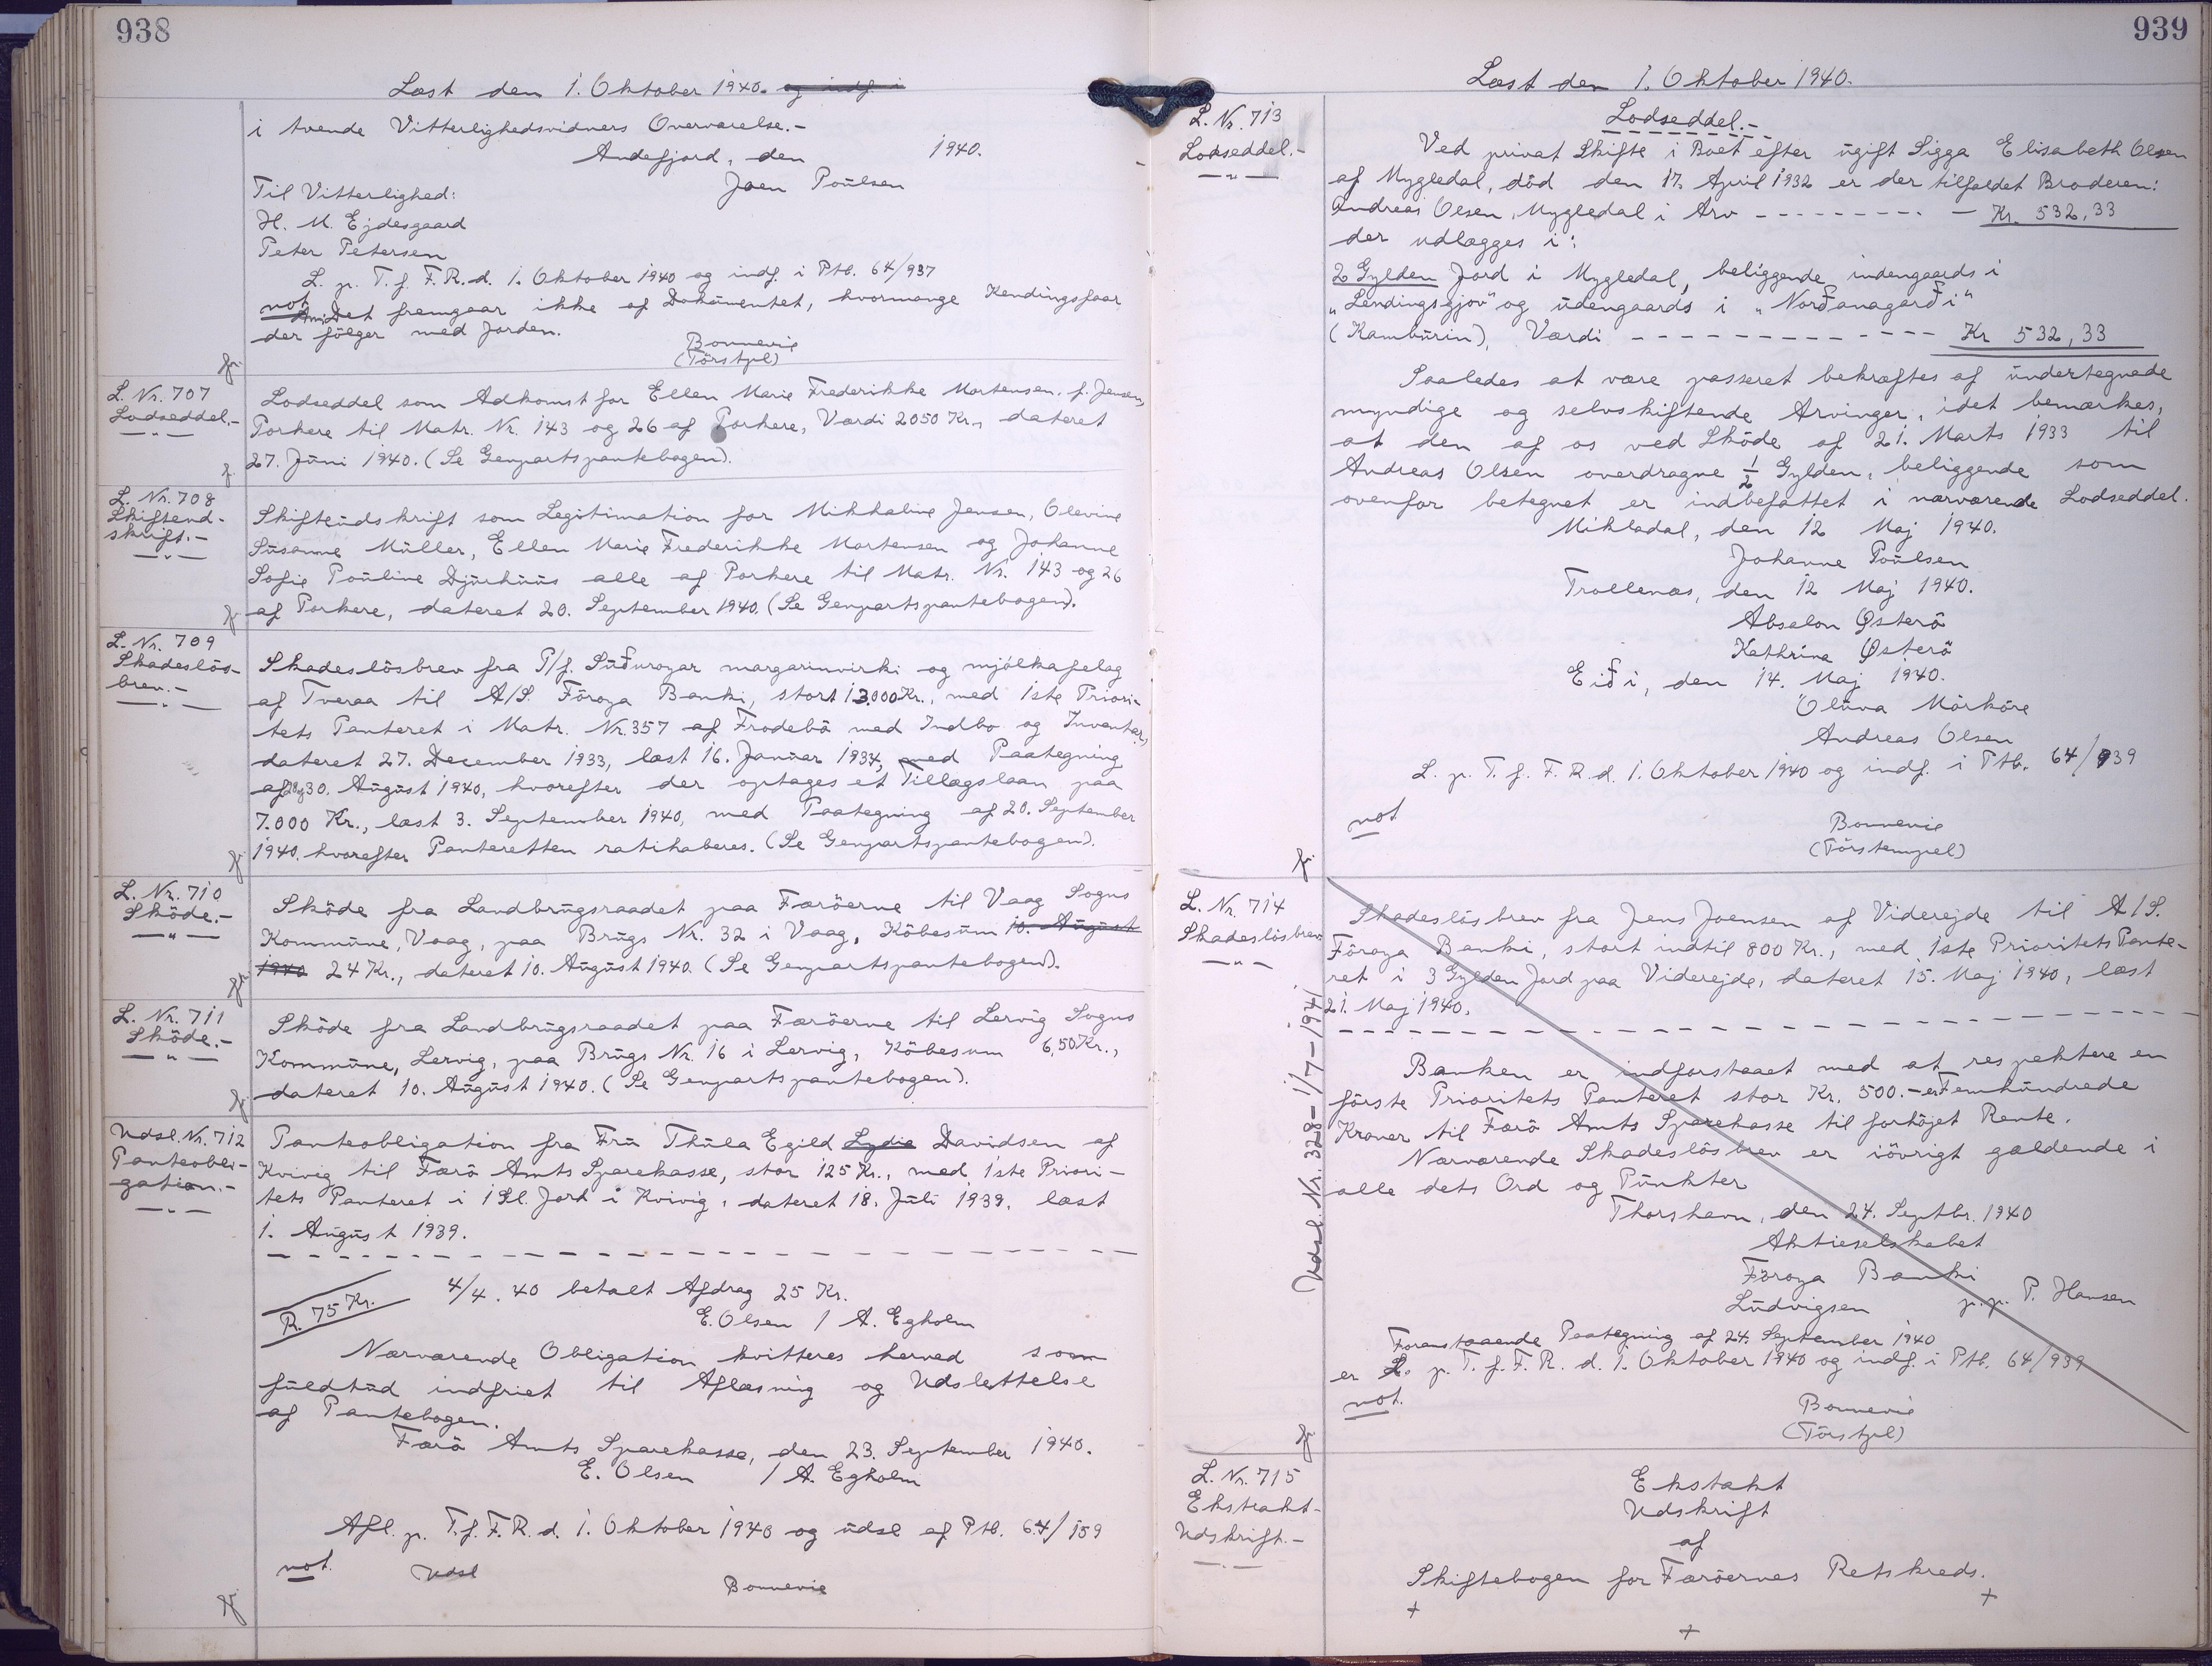 938
Læst den 1. Oktober 1940. og indf. i
i tvende Vitterlighedsvidners Overværelse.-
Andefjord, den 1940.
Joen Poulsen
Til Vitterlighed:
H. M. Ejdesgaard
Peter Petersen
L. p. T. f. F. R. d. 1. Oktober 1940 og indf. i Ptb. 64/937
not Anm: Det fremgaar ikke af Dokumentet, hvormange Kendingsfaar
der følger med Jorden.
Bonnevie
(Törstpl)
L. Nr. 707
Lodseddel.-
Lodseddel som Adkomst for Ellen Marie Frederikke Mortensen, f. Jensen,
Porkere til Matr. Nr. 143 og 26 af Porkere, Værdi 2050 Kr., dateret
27. Juni 1940. (Se Genpartspantebogen).
L. Nr. 708
Skifteud-
skrift.-
Skifteudskrift som Legitimation for Mikkaline Jensen, Olevine
Susanne Müller, Ellen Marie Frederikke Mortensen og Johanne
Sofie Pouline Djurhuus alle af Porkere til Matr. Nr. 143 og 26
af Porkere, dateret 20. September 1940. (Se Genpartspantebogen).
L. Nr. 709
Skadeslös-
brev.-
Skadeslösbrev fra P/f. Suðuroyar margarinvirki og mjólkafelag
af Tveraa til A/S. Föroya Banki, stort 13.000 Kr., med 1ste Priori-
tets Panteret i Matr. Nr. 357 af Frodebö med Indbo og Inventar,
dateret 27. December 1933, læst 16. Januar 1934, med Paategning
af 28 og 30. August 1940, hvorefter der optages et Tillægslaan paa
7.000 Kr., læst 3. September 1940, med Paategning af 20. September
1940. hvorefter Panteretten ratihaberes. (Se Genpartspantebogen).
L. Nr. 710
Sköde.-
Sköde fra Landbrugsraadet paa Færöerne til Vaag Sogns
Kommune, Vaag, paa Brugs Nr. 32 i Vaag, Köbesum 10. August
1940 24 Kr., dateret 10. August 1940. (Se Genpartspantebogen).
L. Nr. 711
Sköde.-
Sköde fra Landbrugsraadet paa Færöerne til Lervig Sogns
Kommune, Lervig, paa Brugs Nr. 16 i Lervig, Köbesum 6,50 Kr.,
dateret 10. August 1940. (Se Genpartspantebogen).
Udsl. Nr. 712
Panteobli-
gation.-
Panteobligation fra Fru Thula Egild Lydia Davidsen af
Kvivig til Færö Amts Sparekasse, stor 125 Kr., med 1ste Priori-
tets Panteret i 1 Sk. Jord i Kvivig, dateret 18. Juli 1939, læst
1. August 1939.
4/4. 40 betalt Afdrag 25 Kr.
R. 75 Kr.
E. Olsen / A. Egholm
Nærværende Obligation kvitteres herved som
fuldtud indfriet til Aflæsning og Udslettelse
af Pantebogen.
Færö Amts Sparekasse, den 23. September 1940.
E. Olsen / A. Egholm
Afl. p. T. f. F. R. d. 1. Oktober 1940 og udsl af Ptb. 64/159
not. Udsl
Bonnevie
939
Læst den 1. Oktober 1940.
L. Nr. 713
Lodseddel.-
Lodseddel.-
Ved privat Skifte i Boet efter ugift Sigga Elisabeth Olsen
af Mygledal, död den 17. April 1932 er der tilfaldet Broderen:
Andreas Olsen, Mygledal i Arv - - - - - - - - - Kr. 532,33
der udlægges i:
2 Gylden Jord i Mygledal, beliggende indengaards i
"Lendingsgjov" og udengaards i "Norðanagarð i"
(Kamburin), Værdi - - - - - - - - - - - - Kr 532,33
Saaledes at være passeret bekræftes af undertegnede
myndige og selvskiftende Arvinger, idet bemærkes,
at den af os ved Sköde af 21. Marts 1933 til
Andreas Olsen overdragne 1/2 Gylden, beliggende som
ovenfor betegnet er indbefattet i nærværende Lodseddel.
Mikladal, den 12 Maj 1940.
Johanne Poulsen
Trollenæs, den 12 Maj 1940.
Absalon Østerö
Kathrina Østerö
Eiði, den 14. Maj 1940.
Oluva Mörköre
Andreas Olsen
L. p. T. f. F. R. d. 1. Oktober 1940 og indf. i Ptb. 64/939
not
Bonnevie
(Törstempel)
L. Nr. 714
Skadeslösbrev
Udsl. Nr. 328 - 1/7 - 1941
Skadeslösbrev fra Jens Joensen af Viderejde til A/S.
Föroya Banki, stort indtil 800 Kr., med 1ste Prioritets Pante-
ret i 3 Gylden Jord paa Viderejde, dateret 15. Maj 1940, læst
21. Maj 1940.
Banken er indforstaaet med at respektere en
förste Prioritets Panteret stor Kr. 500.- er Femhundrede
Kroner til Færö Amts Sparekasse til forhöjet Rente.
Nærværende Skadeslösbrev er iövrigt gældende i
alle dets Ord og Punkter
Thorshavn, den 24. Septbr. 1940
Aktieselskabet
Föroya Banki
Ludvigsen p. p. P. Hansen
Foranstaaende Paategning af 24. September 1940
er L. p. T. f. F. R. d. 1. Oktober 1940 og indf. i Ptb. 64/939
not.
Bonnevie
(Törstpl)
L. Nr. 715
Ekstrakt-
Udskrift.-
Ekstakt
Udskrift
af
Skiftebogen for Færöernes Retskreds.
+ +
+